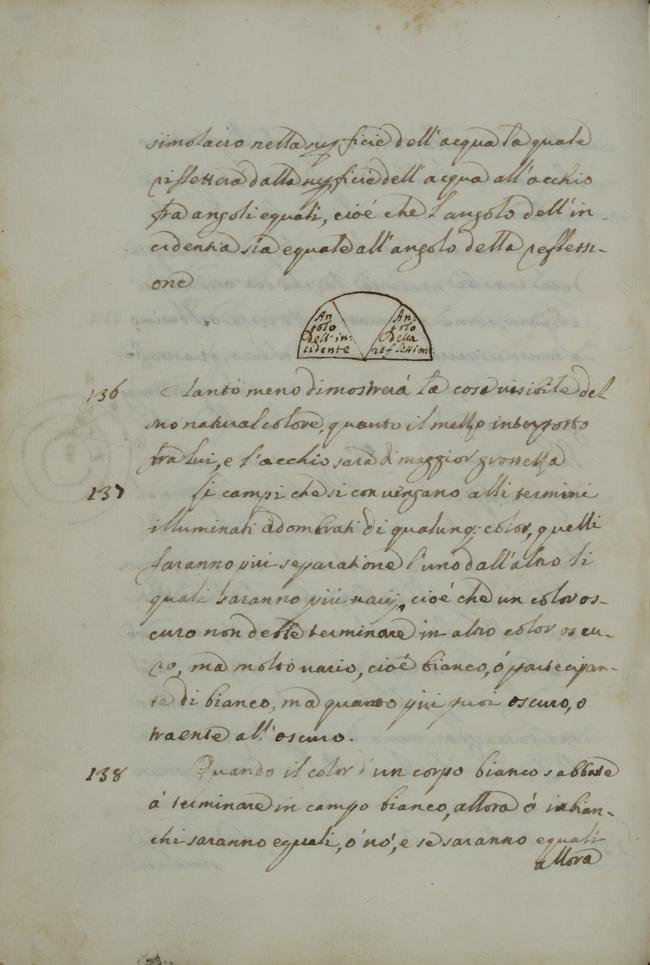 simolacro nella supficie dell'acqua la quale
rifletterà dalla supficie dell'acqua all'occhio
fra angoli equali, cioé che l'angolo dell'in-
cidentia sia equale all'angolo della reflessi-
one
An
golo
dell'in:
cidente
An
golo
della
reflessione
136 Tanto meno dimostrerá la cosa visibile del
suo natural colore, quanto il mezzo interposto
fra lui, e l'occhio sará di maggior grossezza
137 Li campi che si convengano alli termini
illuminati adombrati di qualunq: color, quelli
faranno piú separatione l'uno dall'altro li
quali saranno piú varij, cioé che un color os-
curo non debbe terminare in altro color oscu-
ro, ma molto vario, cioé bianco, ó partecipan-
te di bianco, ma quanto piú puoi oscuro, o
traente all'oscuro.
138 Quando il color d'un corpo bianco s'abbate
á terminare in campo bianco, allora ó i bian-
chi saranno equali, ó nó, e se saranno equali
allora